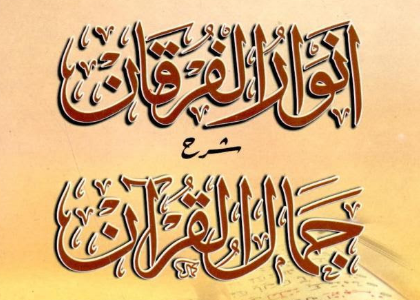 انوارالفرقان
شرح
جمال القرآن